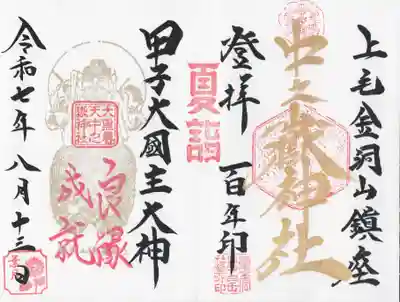 上毛金洞山鎮座
中之嶽神社
登拝 百年印
夏詣
甲子大國主大神
良縁
成就
令和七年八月十三日